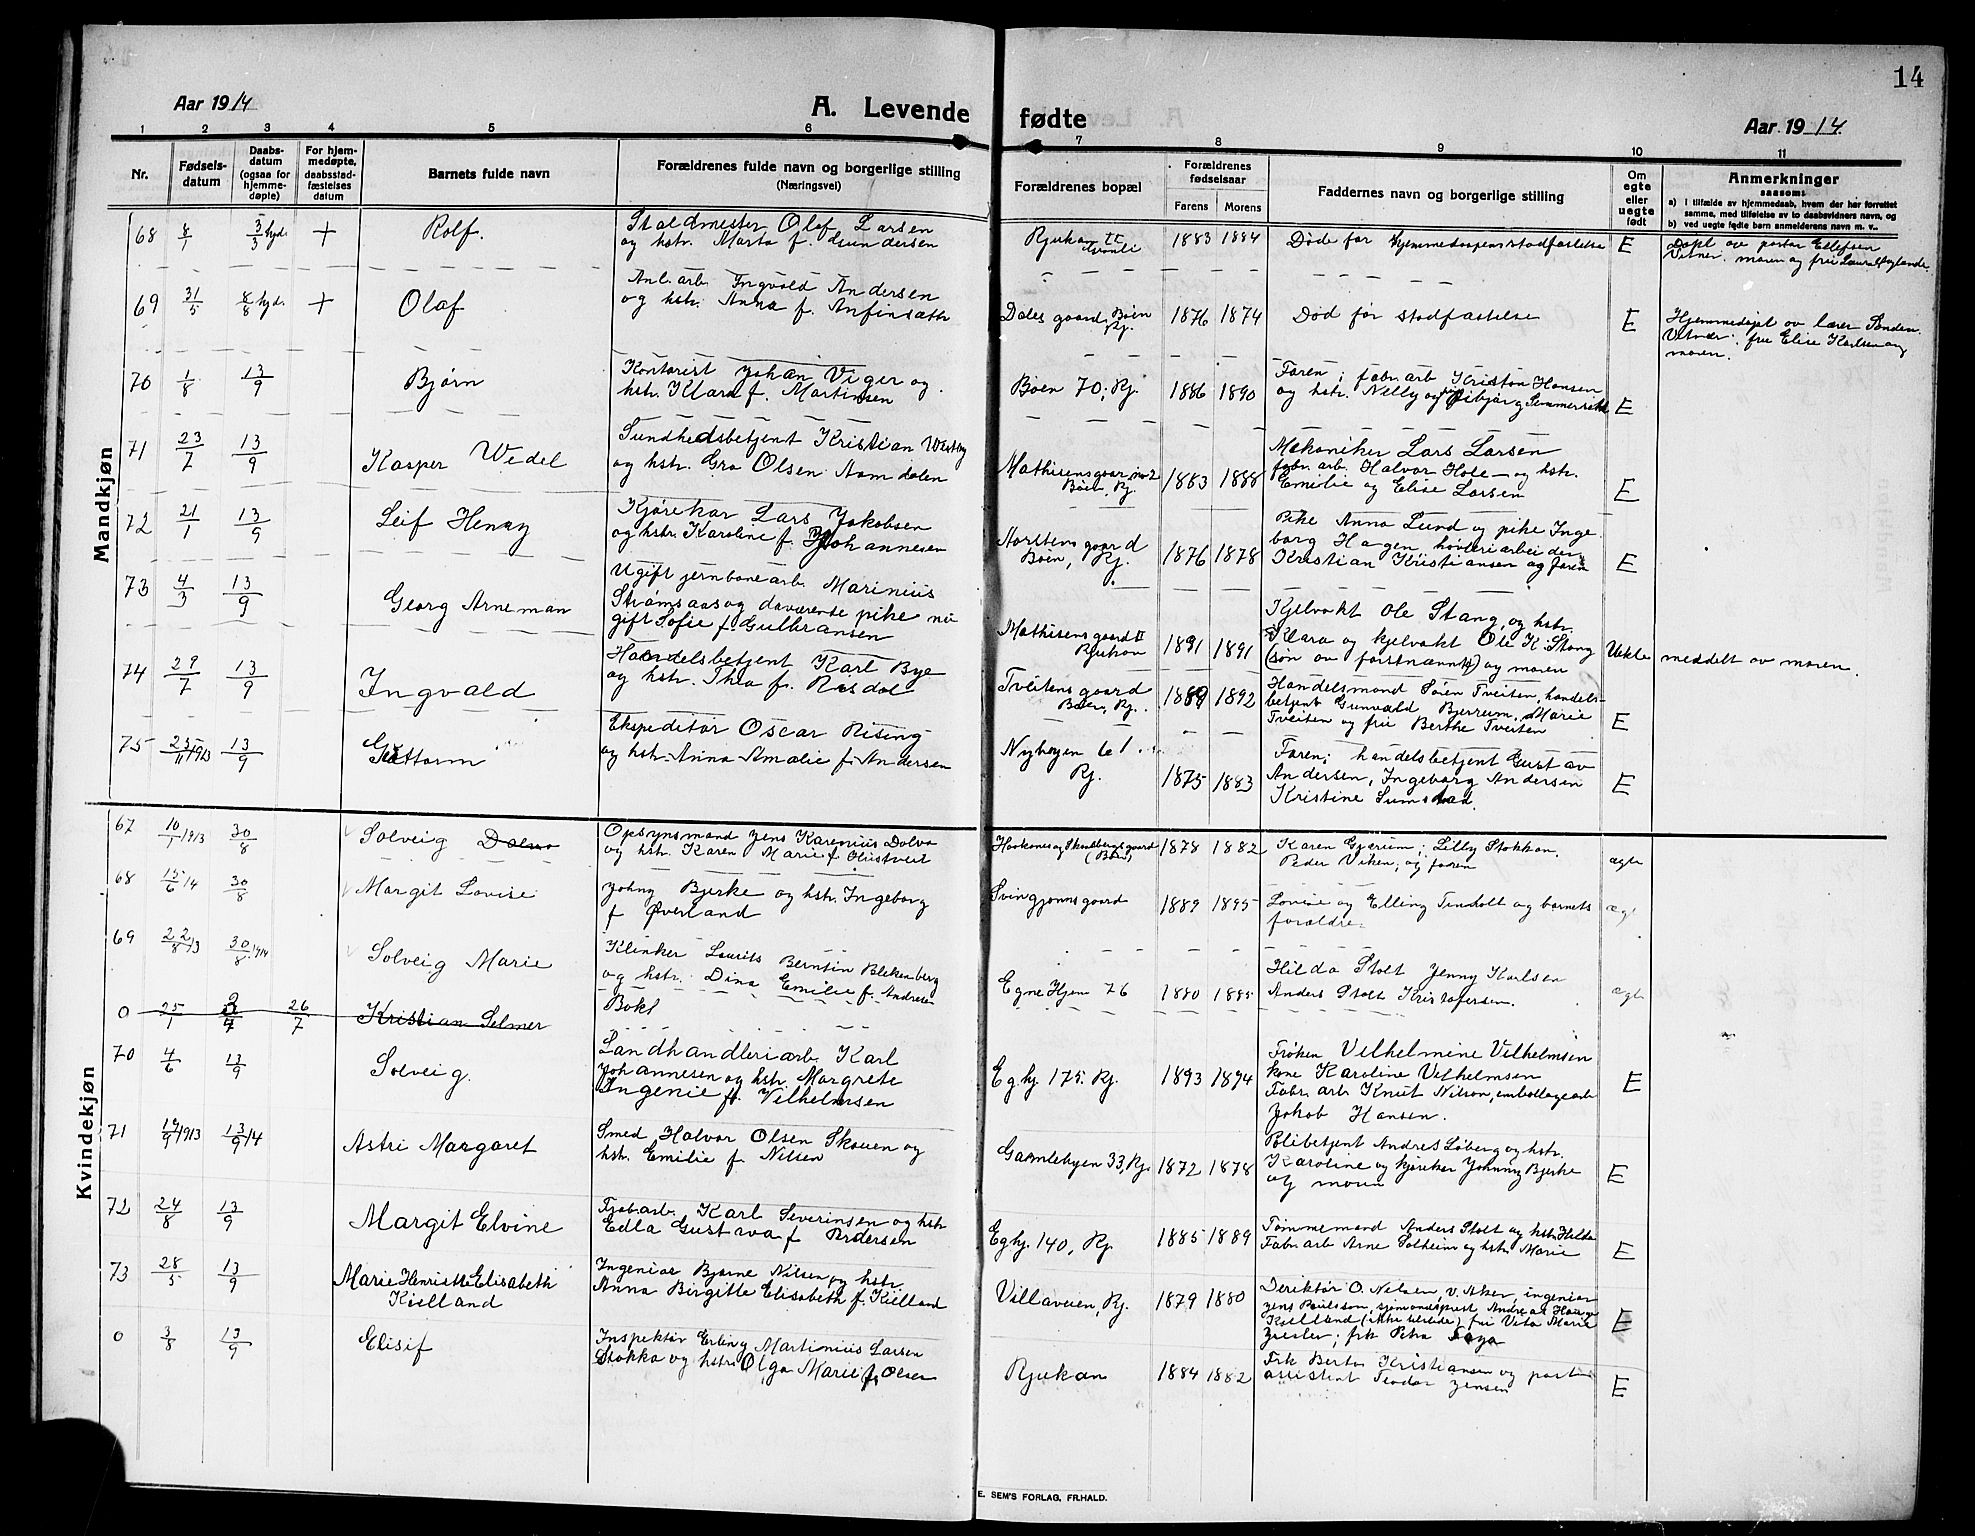 14
Aar 1914
A. Levende
fødte
Aar 1914
1 2 3 4 5 6 7 8 9 10 11
Nr.
Fødsels-
datum
Daabs-
datum
(ogsaa for
hjemme-
døpte)
For hjem-
medøpte,
daabsstad-
fæstelses
datum
Barnets fulde navn
Forældrenes fulde navn og borgerlige stilling
(Næringsvei)
Forældrenes bopæl
Forældrenes
fødselsaar
Farens Morens
Faddernes navn og borgerlige stilling
Om
egte
eller
uegte
født
Anmerkninger
saasom:
a) i tilfælde av hjemmedaab, hvem der har forrettet
samme, med tilføielse av to daabsvidners navn, og
b) ved uegte fødte børn anmelderens navn m. v.
Mandkjøn
68 8/1 3/3 hjd. + Rolf.
Staldmester Olaf Larsen
og hstr. Marta f. Gundersen
Rjukan II
1883 1884 Døde før hjemmedaapens stadfæstelse E
Døpt av pastor Ellefsen
Vitner: moren og fru Laura
69 31/5 8/8 hjd. + Olaf
Anl. arb. Ingvald Andersen
og hstr. Anna f. Anfinsæth
Dales gaard, Bøen
Rj.
1876 1874 Død før stadfæstelse E
Hjemmedøpt av lærer
Vitner: fru Elise Karlsen og
moren.
70 1/8 13/9 Bjørn
Kontorist Johan Viger og
hstr. Klara f. Martinsen
Bøen 70, Rj. 1886 1890
Faren; fabr. arb Kristian Hansen
og hstr. Nelly og E
71 23/7 13/9 Kasper Wedel
Sundhedsbetjent Kristian Westby
og hstr. Gro Olsen Aamdalen
Mathisensgaar nr 2
Bøen, Rj. 1883 1888
Mekaniker Lars Larsen
fabr. arb. Halvor Hole og hstr.
Emilie og Elise Larsen E
72 21/1 13/9 Leif Henry
Kjørekar Lars Jakobsen
og hstr. Karoline f. Johannesen
Aarstensgaard
Bøen, Rj. 1876 1878
Pike Anna Lund og pike Inge
borg Hagen høvleriarbeider
Kristian Kristiansen og faren E
73 4/3 13/9 Georg Arneman
Ugift jernbanearb. Marinius
Strømsaas og daværende pike nu
gift Sofie f. Gulbransen
Mathisensgaard II
Rjukan 1891 1891
Kjelvakt Ole Stang, og hstr.
Klara og kjelvakt Ole K. Stang
(søn av førstnævnte) og moren Uekte meddelt av moren.
74 29/7 13/9 Ingvald
Handelsbetjent Karl Bye
og hstr. Thea f. Rosdal
Tveitensgaard
Bøen, Rj. 1889 1892
Handelsmand Søren Tveiten, handels-
betjent Gunvald Bjerrum, Marie
Tveiten og fru Berthe Tveiten E
75 25/11 1913 13/9 Guttorm
Ekspeditør Oscar Rising
og hstr. Anna Amalie f. Andersen
Nybyen 61
Rj. 1875 1883
Faren; handelsbetjent Gustav
Andersen, Ingeborg Andersen
Kristine Sumstad. E
Kvindekjøn
67 10/1 1913 30/8 Solveig Dolva
Opsynsmand Jens Karenius Dolva
og hstr. Karen Marie f.
Haakones og Skoelbergsgaard
(Bøen) 1878 1882
Karen Gjærum; Lilly Stokkan.
Peder Viken; og faren ægte
68 15/6 14 30/8 Margit Lovise
Johny Bjerke og hstr. Ingeborg
f Øverland
Svingjomsgaard 1889 1895
Lovise og Elling Tindolt og barnets
forældre. ægt
69 22/8 13 30/8 1914 Solveig Marie
Klinker Laurits Berntin Blekenberg
og hstr. Dina Emilie f. Andresen
Egne Hjem 76 1880 1885
Hilda Stolt Jenny Karlsen
Anders Stolt Kristofersen. ægt
0 25/1 2/7 26/7 Kristian Selmer Bøkl
70 4/6 13/9 Solveig.
Landhandleriarb. Karl
Johannesen og hstr. Margrete
Ingenie f. Vilhelmsen
Eg.hj. 175. Rj. 1893 1894
Frøken Vilhelmine Vilhelmsen
kone Karoline Vilhelmsen
Fabr. arb Knut Nilson, emballagearb
Jakob Hansen. E
71 14/9 1913 13/9 14 Astri Margaret
Smed Halvor Olsen Skauen og
hstr. Emilie f. Nilsen
Gamlebyen 33, Rj. 1872 1878
Polibetjent Andres Løberg og hstr.
Karoline og kjørekar Johnny Bjerke
og moren E
72 24/8 13/9 Margit Elvine
Fabr. arb. Karl Severinsen og hstr
Edla Gustava f Pedersen
Eg.hj. 140, Rj. 1885 1889
Tømmermand Anders Stolt og hstr. Hilda
Fabr. arb Arne Solheim og hstr. Marie E
73 28/5 13/9 Marie Henriette Elisabeth
Kielland
Ingeniør Bjarne Nilsen og hstr.
Anna Birgitte Elisabeth f. Kielland
Villaveien, Rj. 1879 1880
Direktør O. Nilsen, v. Aker, ingeniør
Jens Paulsson, sjømandsprest Andreas Hauge
Kielland (ikke tilstede) fru Vita Marie
Ziesler; frk Petra E
0 3/8 13/9 Elisif
Inspektør Erling Martinius Larsen
Stokke og hstr. Olga Marie f. Olsen
Rjukan 1884 1882
Frk Berta Kristiansen og
assistent Teodor Jensen E
E. SEM'S FORLAG, FR.HALD.